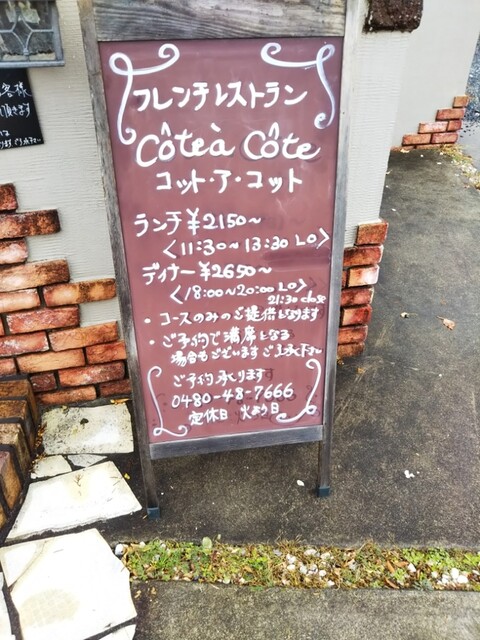 フレンチレストラン
Côte à Côte
コット・ア・コット
ランチ ¥2150〜
<11:30〜13:30 LO>
ディナー ¥2650〜
<18:00〜20:00 LO>
21:30 close
・コースのみのご提供となります
・ご予約で満席となる
場合もございます ご了承下さい
ご予約承ります
0480-48-7666
定休日 火よう日
客様
頂きます